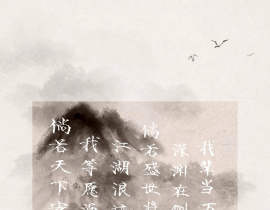 倘若天下安
我等愿渔
江湖浪迹
倘若盛世将
深渊在侧
我辈当万